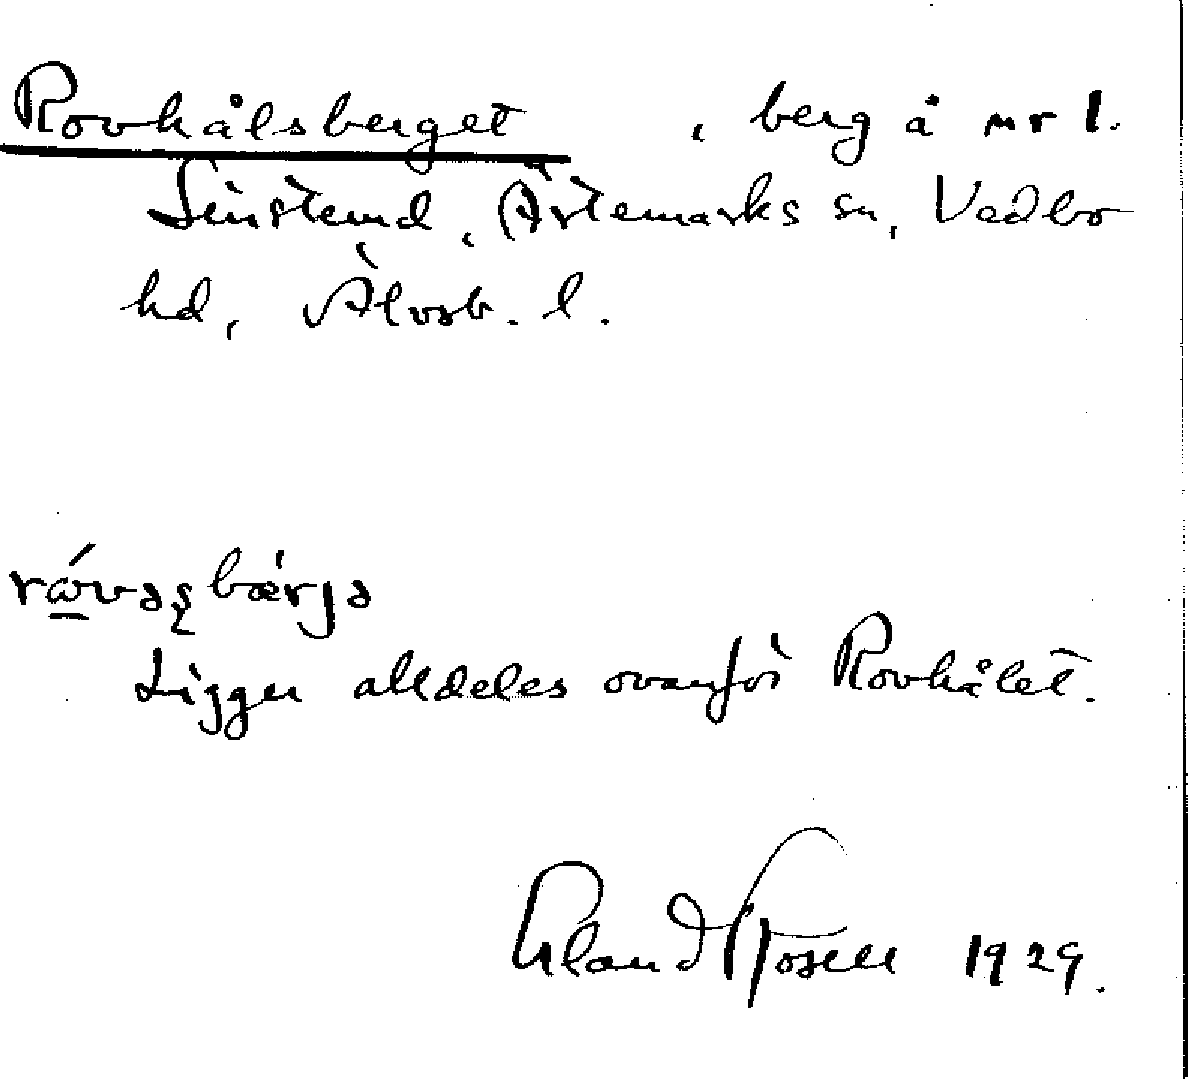 Rovhålsberget , berg å nr 1.
Linstemd, Ärtemarks sn, Vedbo
hd, Älvsb. l.
rávasbärja
Ligger alldeles ovanför Rovhålet.
Erland Rosell 1929.